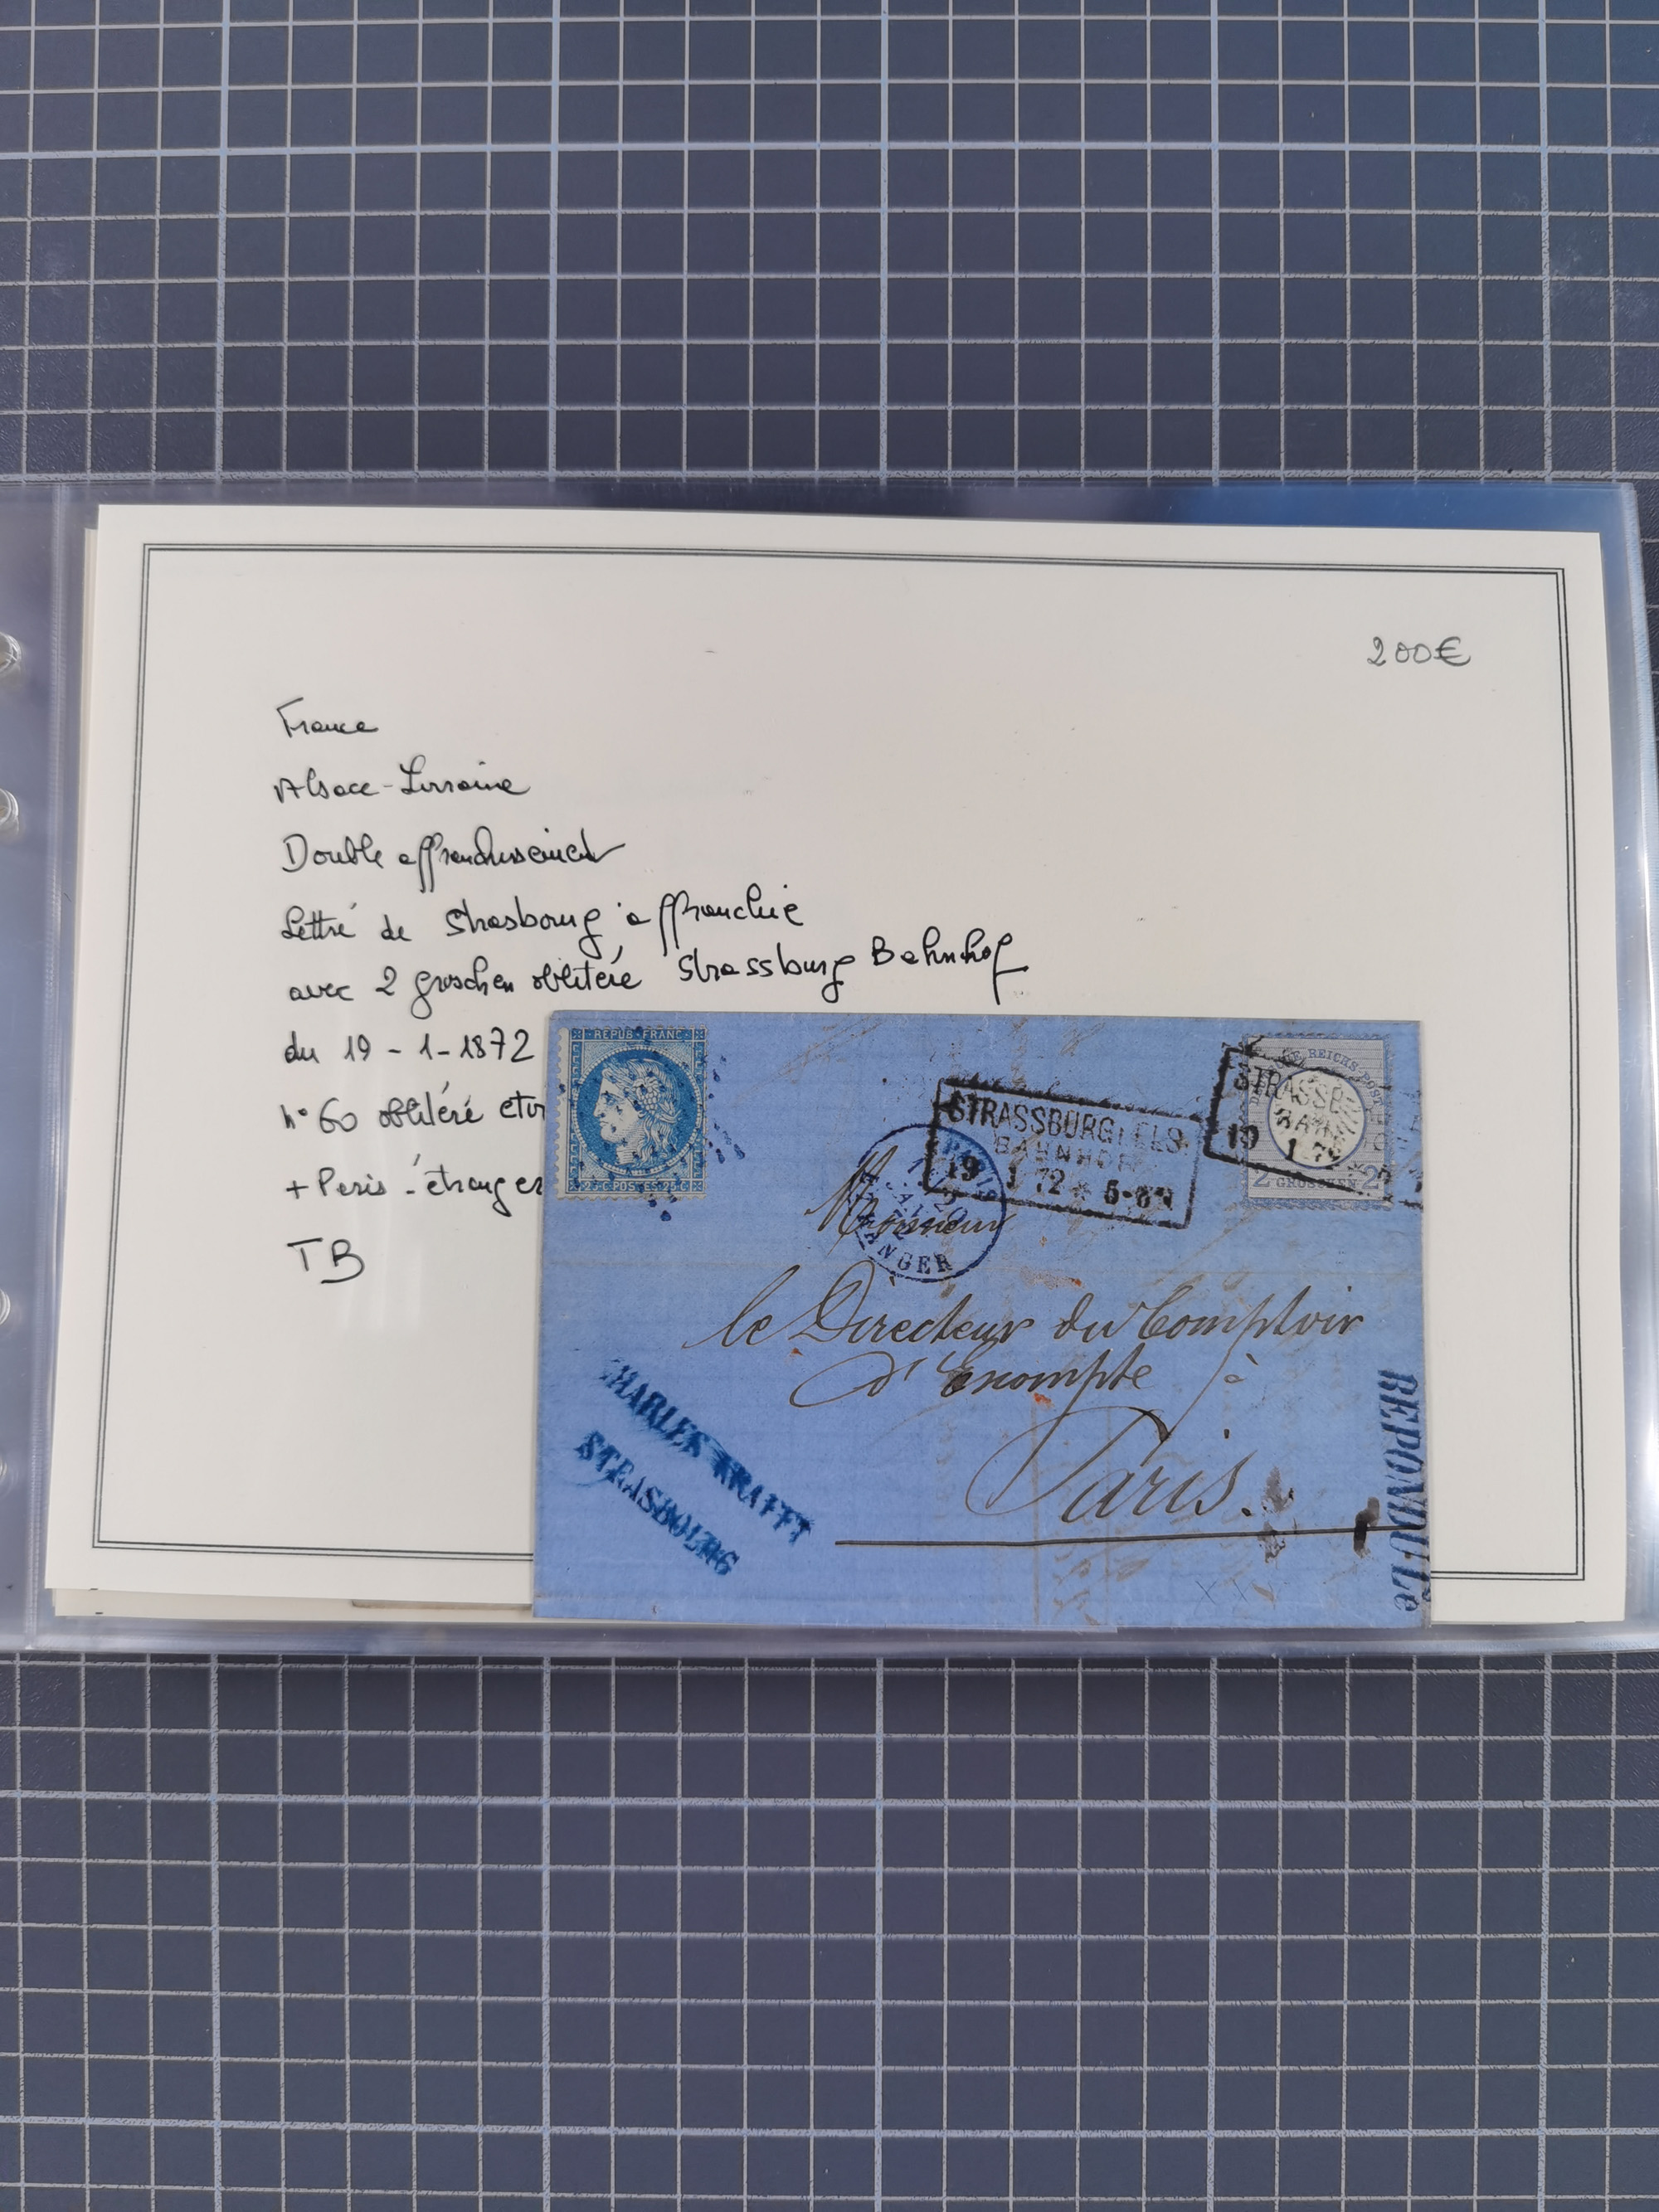 200€
France
Alsace-Lorraine
Double affranchissement
Lettre de Strasbourg affranchie
avec 2 groschen oblitéré Strassburg Bahnhof
du 19-1-1872
n° 60 oblitéré
+ Paris-étranger
TB
REPUB FRANC
25 C POSTES 25 C
STRASSBURG I ELS.
BAHNHOF
19 1 72
REICHS-POST
STRASSB
BAHN
19 1 72
2 GROSCHEN 2
PARIS
ETRANGER
Monsieur
le Directeur du Comptoir
d'Escompte à
Paris.
CHARLES KRAFFT
STRASBOURG
REPONDU LE